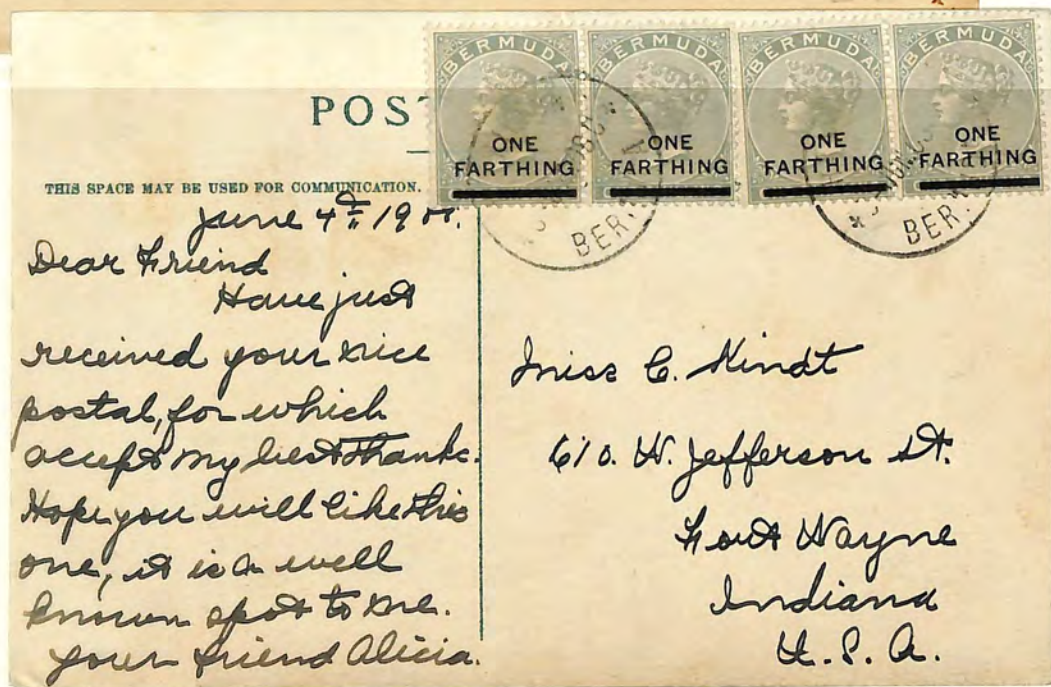 POST
BERMUDA BERMUDA BERMUDA BERMUDA
ONE FARTHING ONE FARTHING ONE FARTHING ONE FARTHING
BER
BER
THIS SPACE MAY BE USED FOR COMMUNICATION.
June 4th 19
Dear Friend
Have just
received your nice
postal, for which
accept my best thanks.
Hope you will like this
one, it is a well
known spot to me.
your friend Alicia.
Miss C. Kindt
610. W. Jefferson St.
Fort Wayne
Indiana
U.S.A.